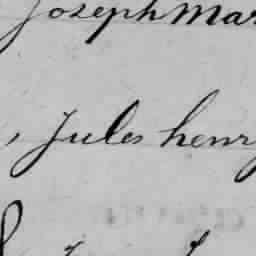 Joseph Mar
, Jules henry